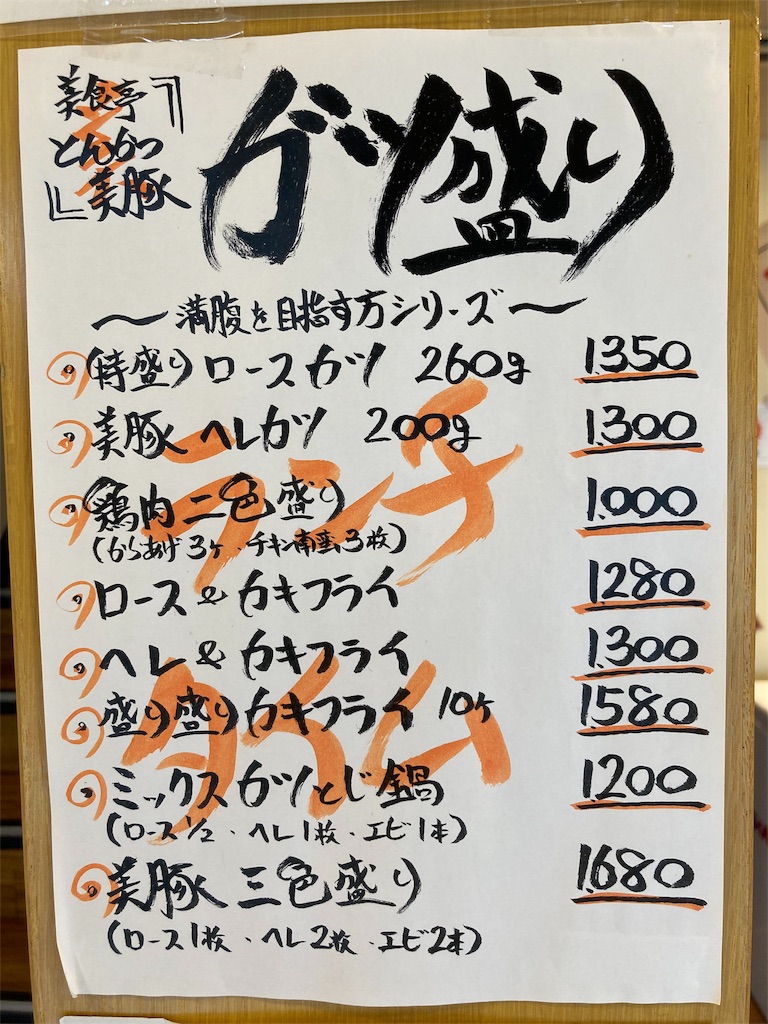 『美食亭
とんかつ
美豚』
ガツ盛り
〜満腹を目指す方シリーズ〜
(特盛り)ロースカツ 260g 1,350
美豚ヘレカツ 200g 1,300
鶏肉二色盛り 1,000
(からあげ3ヶ・チキン南蛮3枚)
ロース&カキフライ 1,280
ヘレ&カキフライ 1,300
盛り盛りカキフライ 10ヶ 1,580
ミックスカツとじ鍋 1,200
(ロース1/2・ヘレ1枚・エビ1本)
美豚三色盛り 1,680
(ロース1枚・ヘレ2枚・エビ2本)
ランチ
タイム